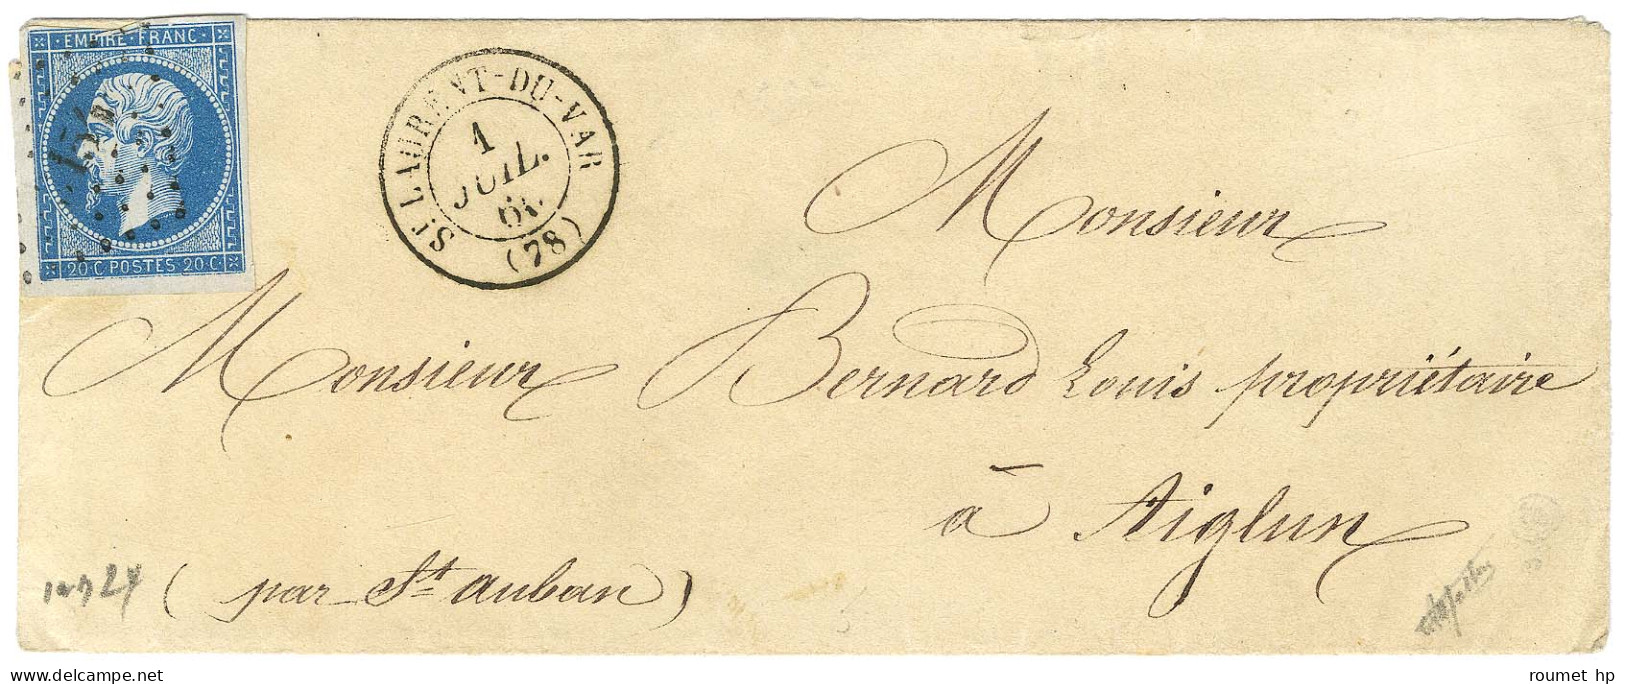 EMPIRE·FRANC·
20 C POSTES 20 C·
ST LAURENT-DU-VAR
1
JUIL.
60.
(78)
Monsieur
Monsieur Bernard Louis propriétaire
à Aiglun
(par St auban)
roumet hp